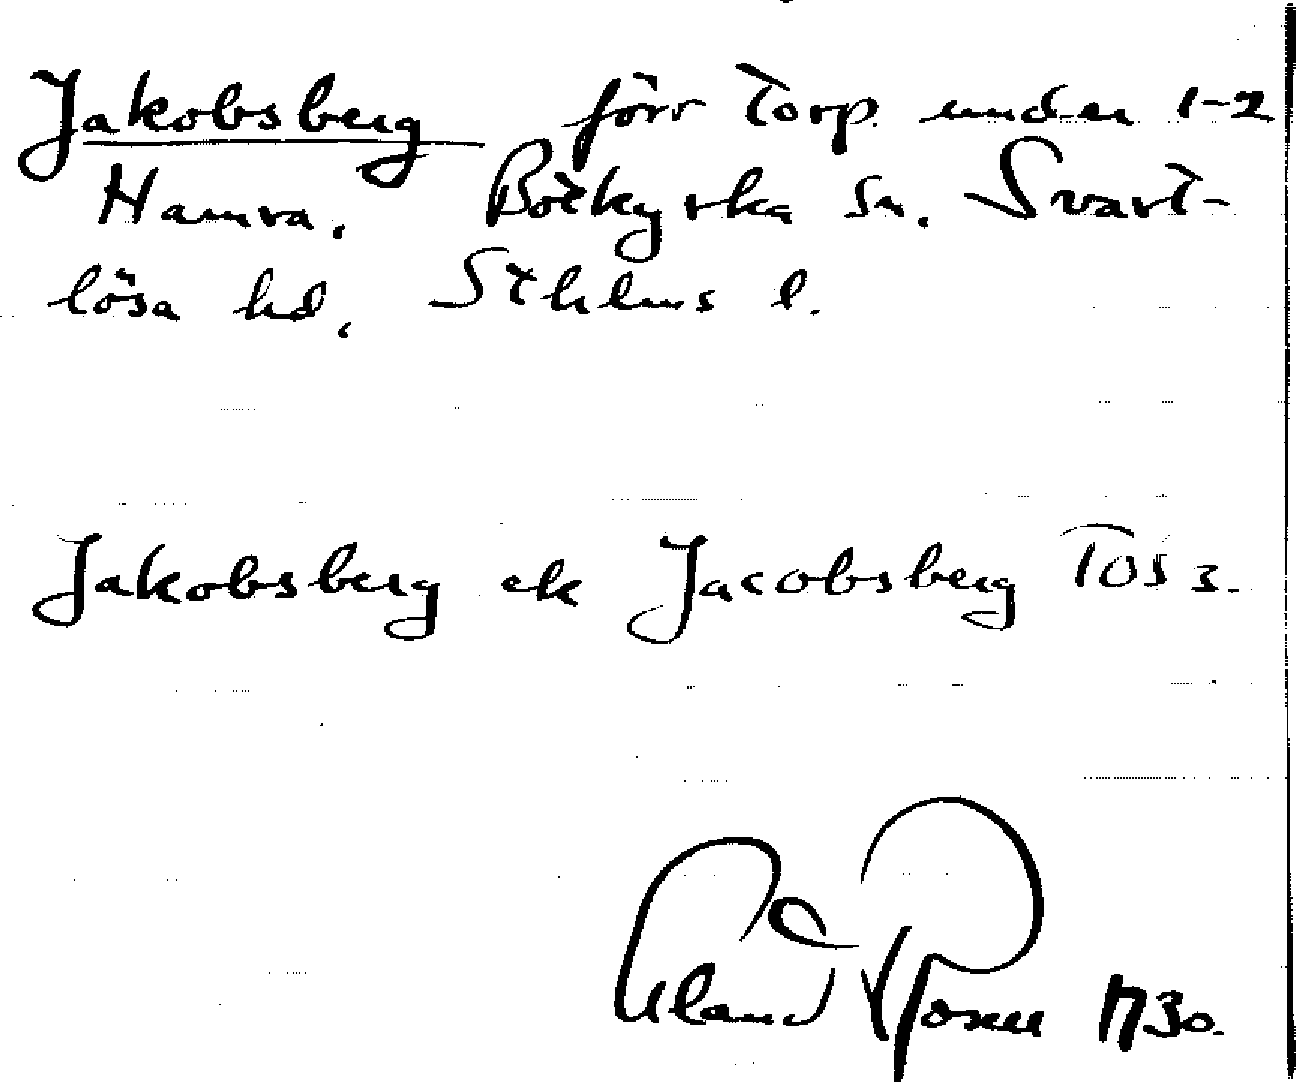 Jakobsberg förr torp under 1-2
Hamra. Botkyrka sn. Svart-
lösa hd, Sthlms l.
Jakobsberg ek Jacobsberg
Rosell 1930.